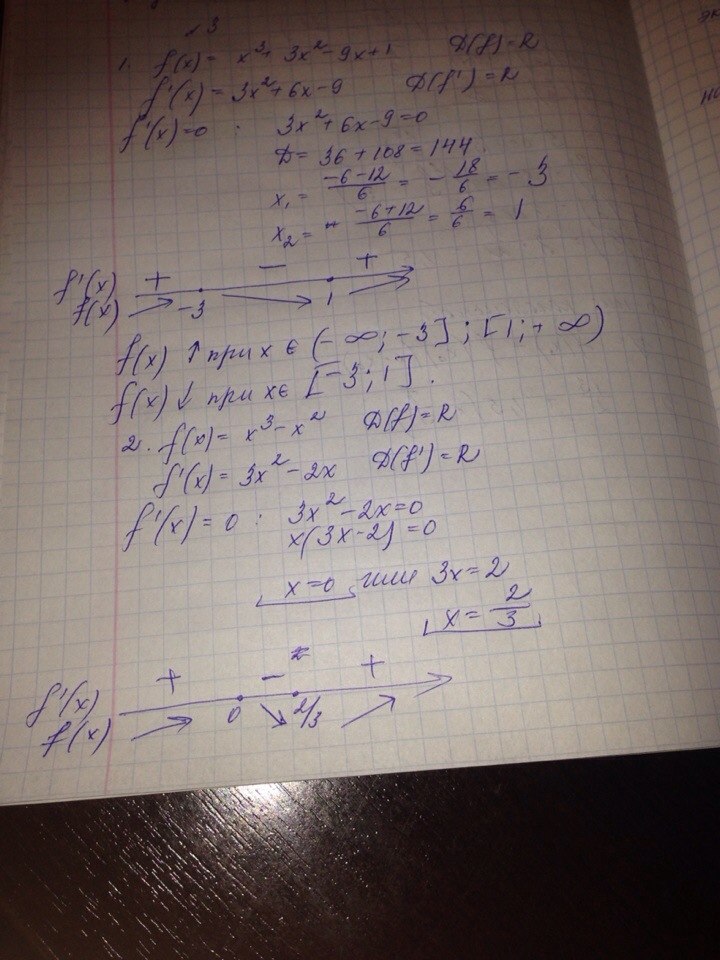 3
1. f(x) = x³ + 3x² - 9x + 1 D(f) = R
f'(x) = 3x² + 6x - 9 D(f') = R
f'(x) = 0 : 3x² + 6x - 9 = 0
D = 36 + 108 = 144
x₁ = (-6-12)/6 = -18/6 = -3
x₂ = (-6+12)/6 = 6/6 = 1
f'(x) + - +
f(x) -3 1
f(x) ↑ при x ∈ (-∞; -3] ; [1; +∞)
f(x) ↓ при x ∈ [-3; 1].
2. f(x) = x³ - x² D(f) = R
f'(x) = 3x² - 2x D(f') = R
f'(x) = 0 : 3x² - 2x = 0
x(3x-2) = 0
x = 0 или 3x = 2
x = 2/3
f'(x) + - +
f(x) 0 2/3